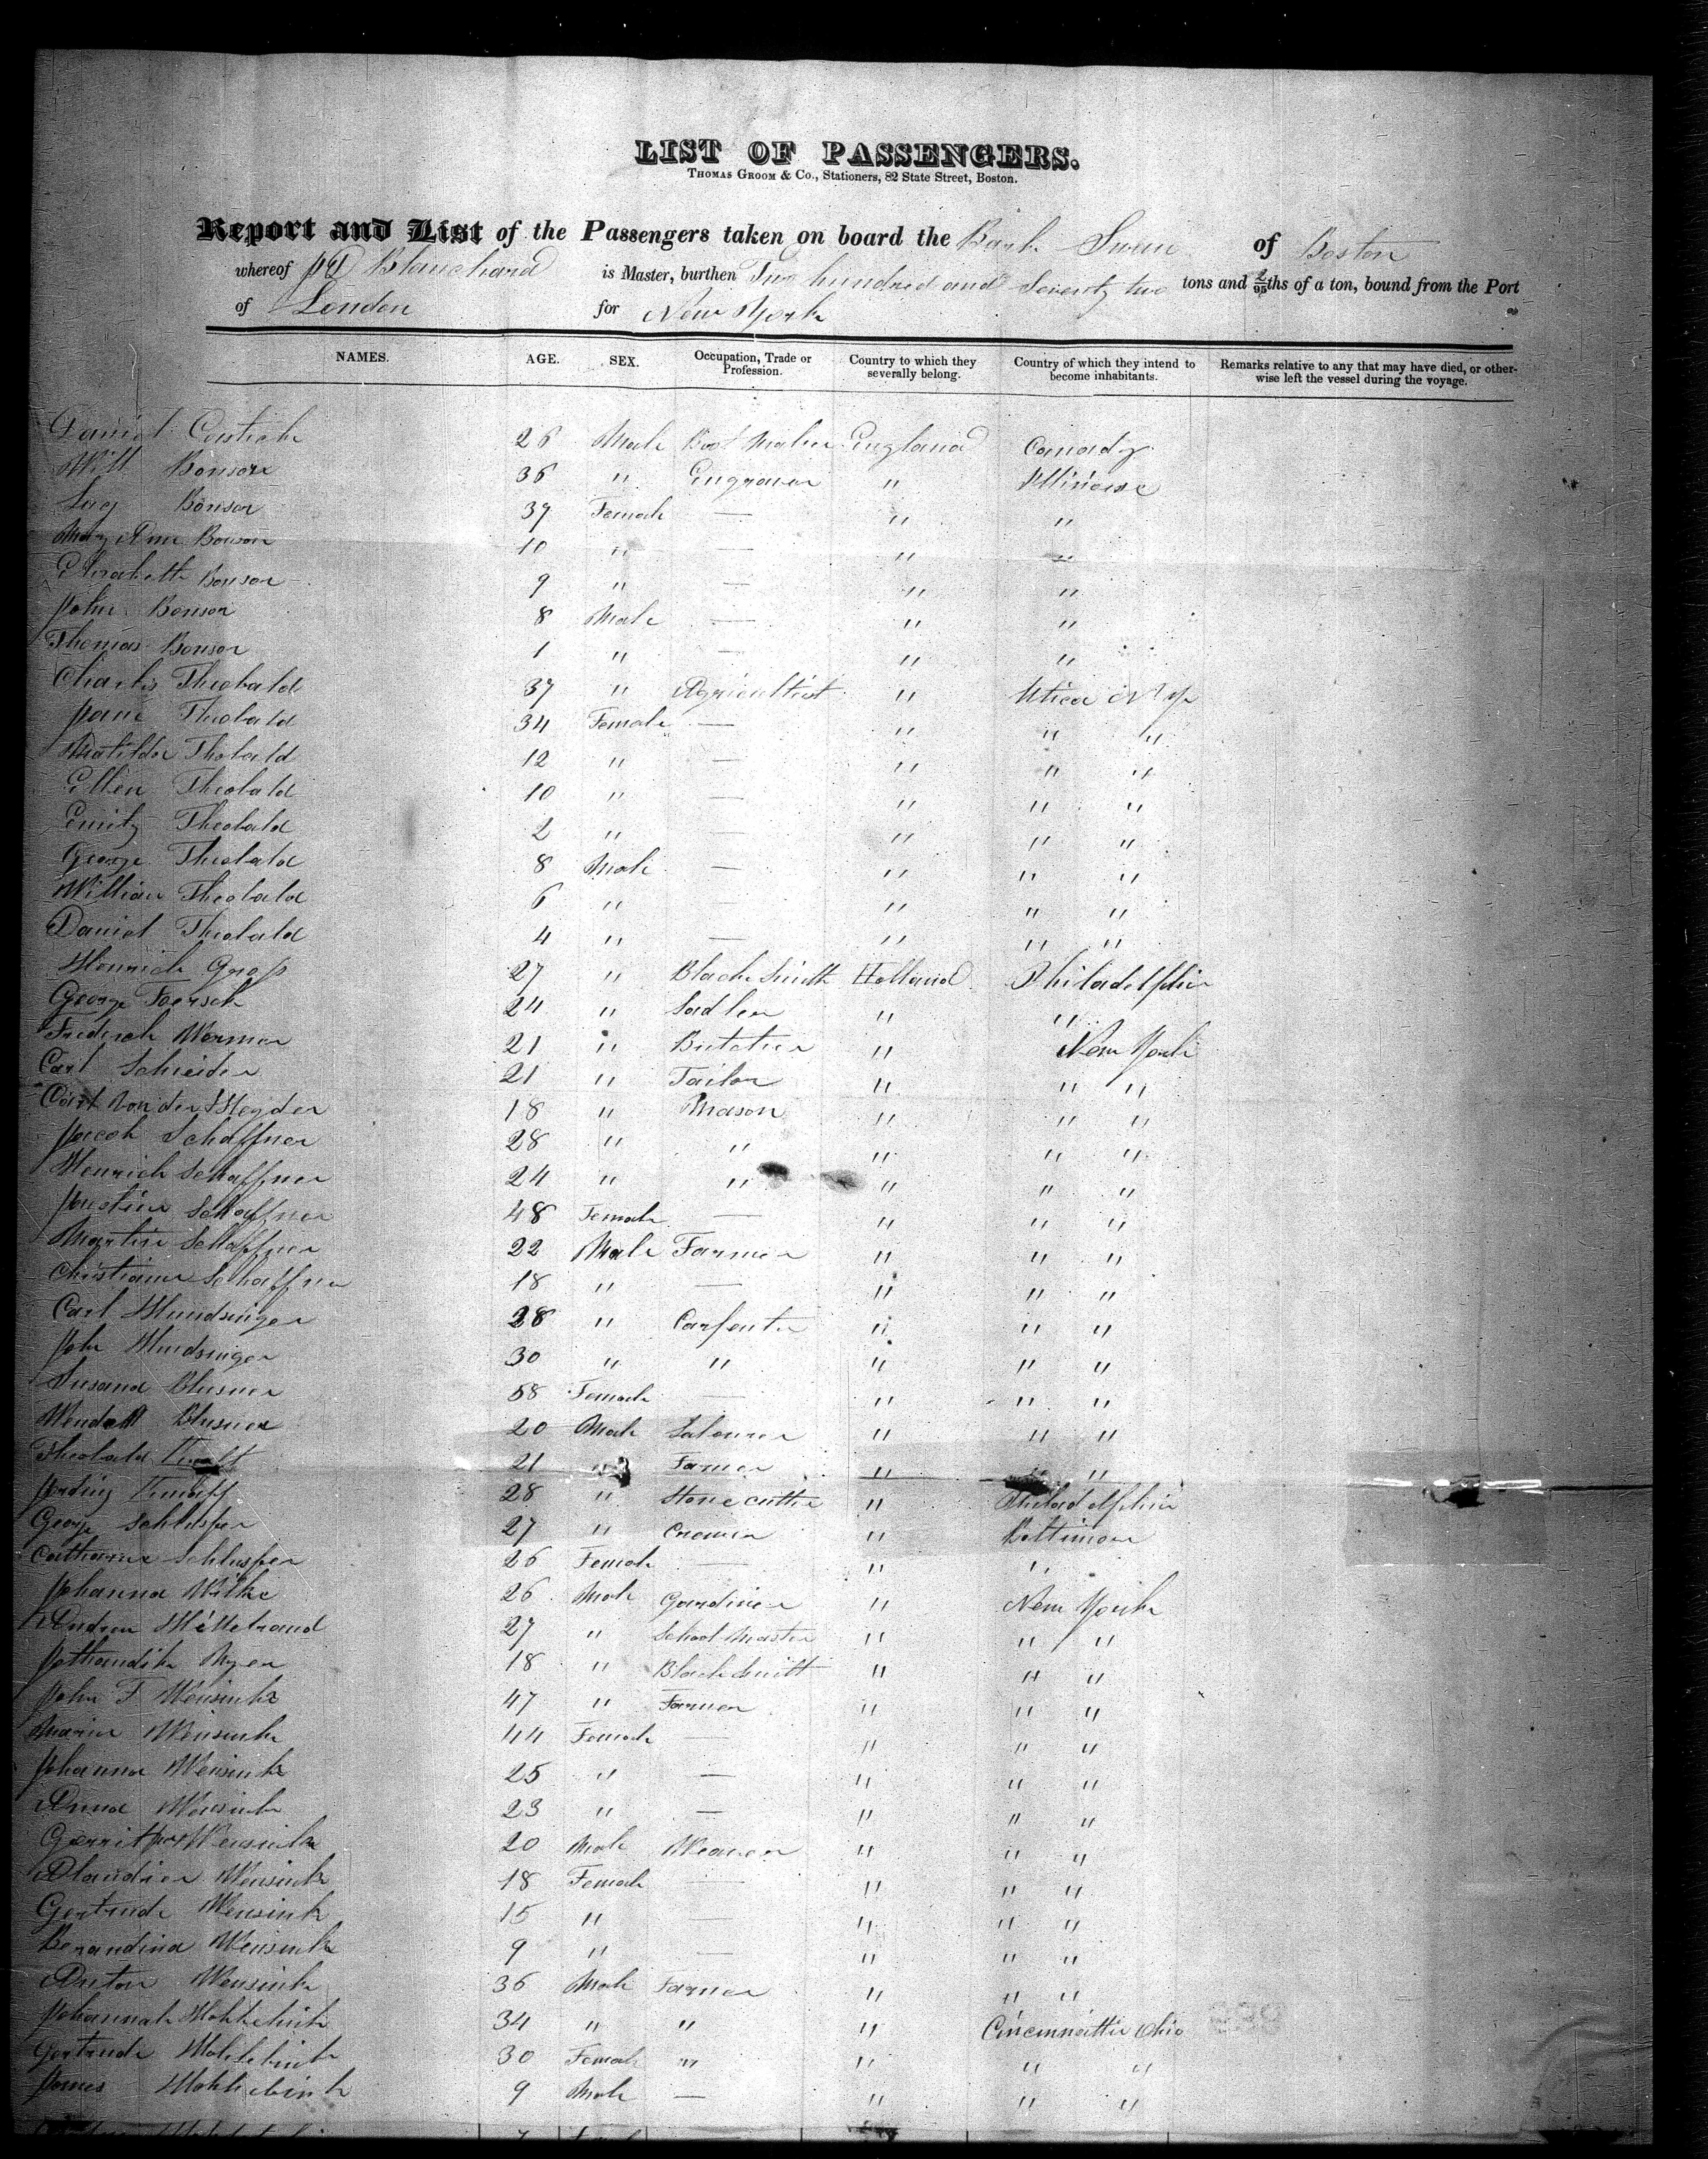 LIST OF PASSENGERS.
THOMAS GROOM & CO., Stationers, 82 State Street, Boston.
Report and List of the Passengers taken on board the Bark Swan of Boston
whereof Blanchard is Master, burthen Two hundred and Seventy two tons and 2/95ths of a ton, bound from the Port
of London for New York
NAMES. AGE. SEX. Occupation, Trade or Profession. Country to which they severally belong. Country of which they intend to become inhabitants. Remarks relative to any that may have died, or otherwise left the vessel during the voyage.
Daniel 26 Male Boot Maker England Canady
Will Bonsor 36 " Engraver " Illinoise
Bonsor 37 Female — " "
Mary Ann Bonson 10 " — " "
Elizabeth Bonsor 9 " — " "
John Bonsor 8 Male — " "
Thomas Bonsor 1 " — " "
Charles Theobald 37 " Agricultist " Utica N Y
Jane Theobald 34 Female — " " "
Matilda Theobald 12 " — " " "
Ellen Theobald 10 " — " " "
Emily Theobald 2 " — " " "
George Theobald 8 Male — " " "
William Theobald 6 " — " " "
Daniel Theobald 4 " — " " "
Henrich Gross 27 " Black Smith Holland Philadelphia
George Foersch 24 " Sadler " "
Frederick Wermer 21 " Butcher " New York
Carl Schieider 21 " Tailor " " "
Carl von der Heyder 18 " Mason " " "
Jacob Schaffner 28 " " " " "
Henrich Schaffner 24 " " " " "
Justine Schaffner 48 Female — " " "
Martin Schaffner 22 Male Farmer " " "
Christiane Schaffner 18 " — " " "
Carl Hundsinger 28 " Carpenter " " "
John Hundsinger 30 " " " " "
Susana Blusner 58 Female — " " "
Wendell Blusner 20 Male Labourer " " "
Theobald 21 " Farmer " " "
28 " Stone cutter " Philadelphia
George Schlusser 27 " " Baltimore
Catharine Schlusser 26 Female — " "
Johanna Wilke 26 Male Gardiner " New York
Andrew Hillebrand 27 " School Master " " "
Myer 18 " Black Smith " " "
John F Wensink 47 " Farmer " " "
Maria Wensink 44 Female — " " "
Johanna Wensink 25 " — " " "
Anna Wensink 23 " — " " "
Gerrit Wensink 20 Male Weaver " " "
Wensink 18 Female — " " "
Gertrude Wensink 15 " — " " "
Berandina Wensink 9 " — " " "
Anton Wensink 36 Male Farmer " " "
Johannah 34 " " " Cincinnattie Ohio
Gertrude 30 Female " " " "
James 9 Male — " " "